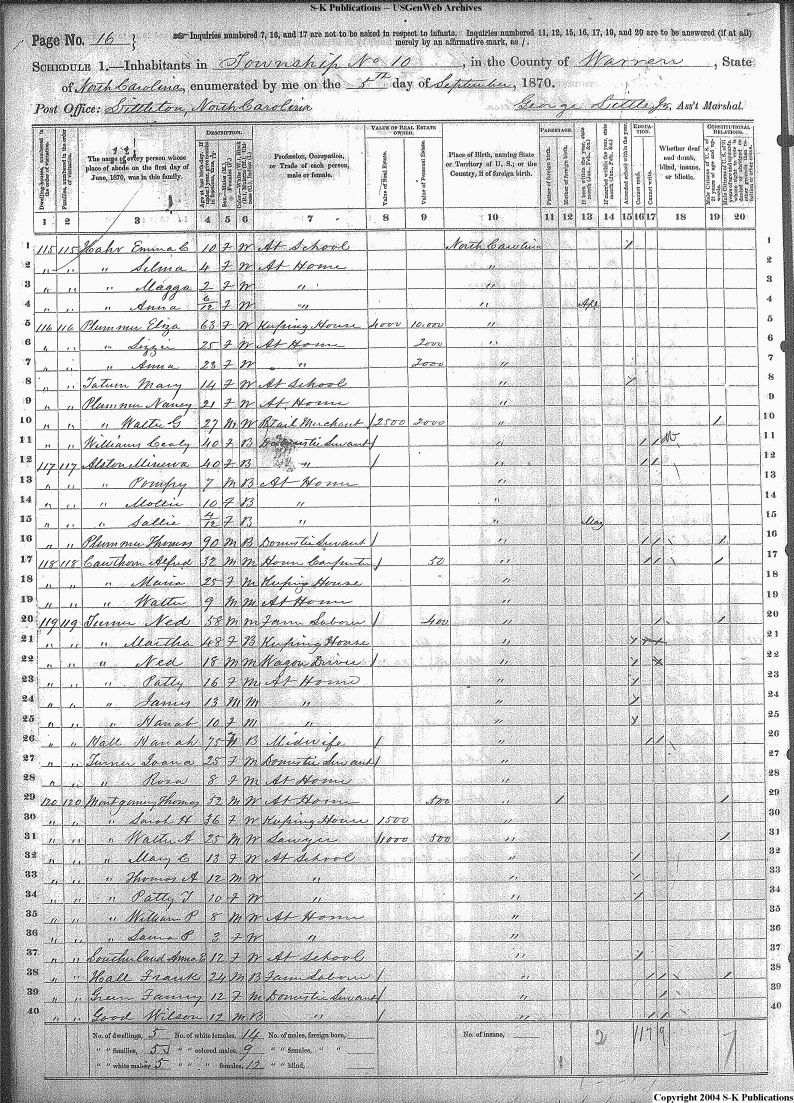 S-K Publications -- USGenWeb Archives
Page No. 16
Inquiries numbered 7, 16, and 17 are not to be asked in respect to infants. Inquiries numbered 11, 12, 15, 16, 17, 19, and 20 are to be answered (if at all) merely by an affirmative mark, as /.
SCHEDULE 1.—Inhabitants in Township No 10, in the County of Warren, State
of North Carolina, enumerated by me on the 5th day of September, 1870.
Post Office: Littleton, North Carolina George Little Jr, Ass't Marshal.
DESCRIPTION. VALUE OF REAL ESTATE OWNED. PARENTAGE. EDUCATION. CONSTITUTIONAL RELATIONS.
The name of every person whose place of abode on the first day of June, 1870, was in this family.
Profession, Occupation, or Trade of each person, male or female.
Value of Real Estate. Value of Personal Estate.
Place of Birth, naming State or Territory of U. S.; or the Country, if of foreign birth.
Father of foreign birth. Mother of foreign birth.
Cannot read. Cannot write.
Whether deaf and dumb, blind, insane, or idiotic.
1 2 3 4 5 6 7 8 9 10 11 12 13 14 15 16 17 18 19 20
1 115 115 Hahr Emma C 10 F W At School North Carolina / 1
2 " " " Selma 4 F W At Home " 2
3 " " " Magga 2 F W " " 3
4 " " " Anna 6/12 F W " " Apr 4
5 116 116 Plummer Eliza 63 F W Keeping House 4000 10.000 " 5
6 " " " Lizzie 25 F W At Home 2000 " 6
7 " " " Anna 23 F W " 2000 " 7
8 " " Tatum Mary 14 F W At School " / 8
9 " " Plummer Nancy 21 F W At Home " 9
10 " " " Walter G 27 M W Retail Merchant / 2500 2000 " / 10
11 " " Williams Cealy 40 F B Domestic Servant / " / / 11
12 117 117 Alston Minerva 40 F B " / " / / 12
13 " " " Pompy 7 M B At Home " 13
14 " " " Mollie 10 F B " " 14
15 " " " Sallie 4/12 F B " " May 15
16 " " Plummer Thomas 90 M B Domestic Servant / " / / / 16
17 118 118 Cawthorn Alfred 32 M M House Carpenter / 50 " / / / 17
18 " " " Maria 25 F M Keeping House " 18
19 " " " Walter 9 M M At Home " 19
20 119 119 Turner Ned 58 M M Farm Laborer / 400 " / / 20
21 " " " Martha 48 F B Keeping House " 21
22 " " " Ned 18 M M Wagon Driver / " 22
23 " " " Patty 16 F M At Home " / 23
24 " " " James 13 M M " " / 24
25 " " " Hanah 10 F M " " / 25
26 " " Hall Hanah 75 F B Midwife / " / / 26
27 " " Turner Joana 25 F M Domestic Servant / " 27
28 " " " Rosa 8 F M At Home " 28
29 120 120 Montgomery Thomas 52 M W At Home 500 " / / 29
30 " " " Sarah H 36 F W Keeping House 1500 " 30
31 " " " Walter A 25 M W Sawyer / 1000 500 " / 31
32 " " " Mary C 13 F W At School " / 32
33 " " " Thomas A 12 M W " " / 33
34 " " " Patty T 10 F W " " / 34
35 " " " William P 8 M W At Home " 35
36 " " " Laura P 3 F W " " 36
37 " " Southerland Anna E 12 F W At School " / 37
38 " " Hall Frank 24 M B Farm Laborer / " / / / 38
39 " " Green Fanny 12 F M Domestic Servant / " / 39
40 " " Good Wilson 12 M B / " / / 40
No. of dwellings, 5 No. of white females, 14 No. of males, foreign born, No. of insane, 2
" " families, 5 " " colored males, 9 " " females, " " 
" " white males, 5 " " " females, 12 " " blind,
Copyright 2004 S-K Publications